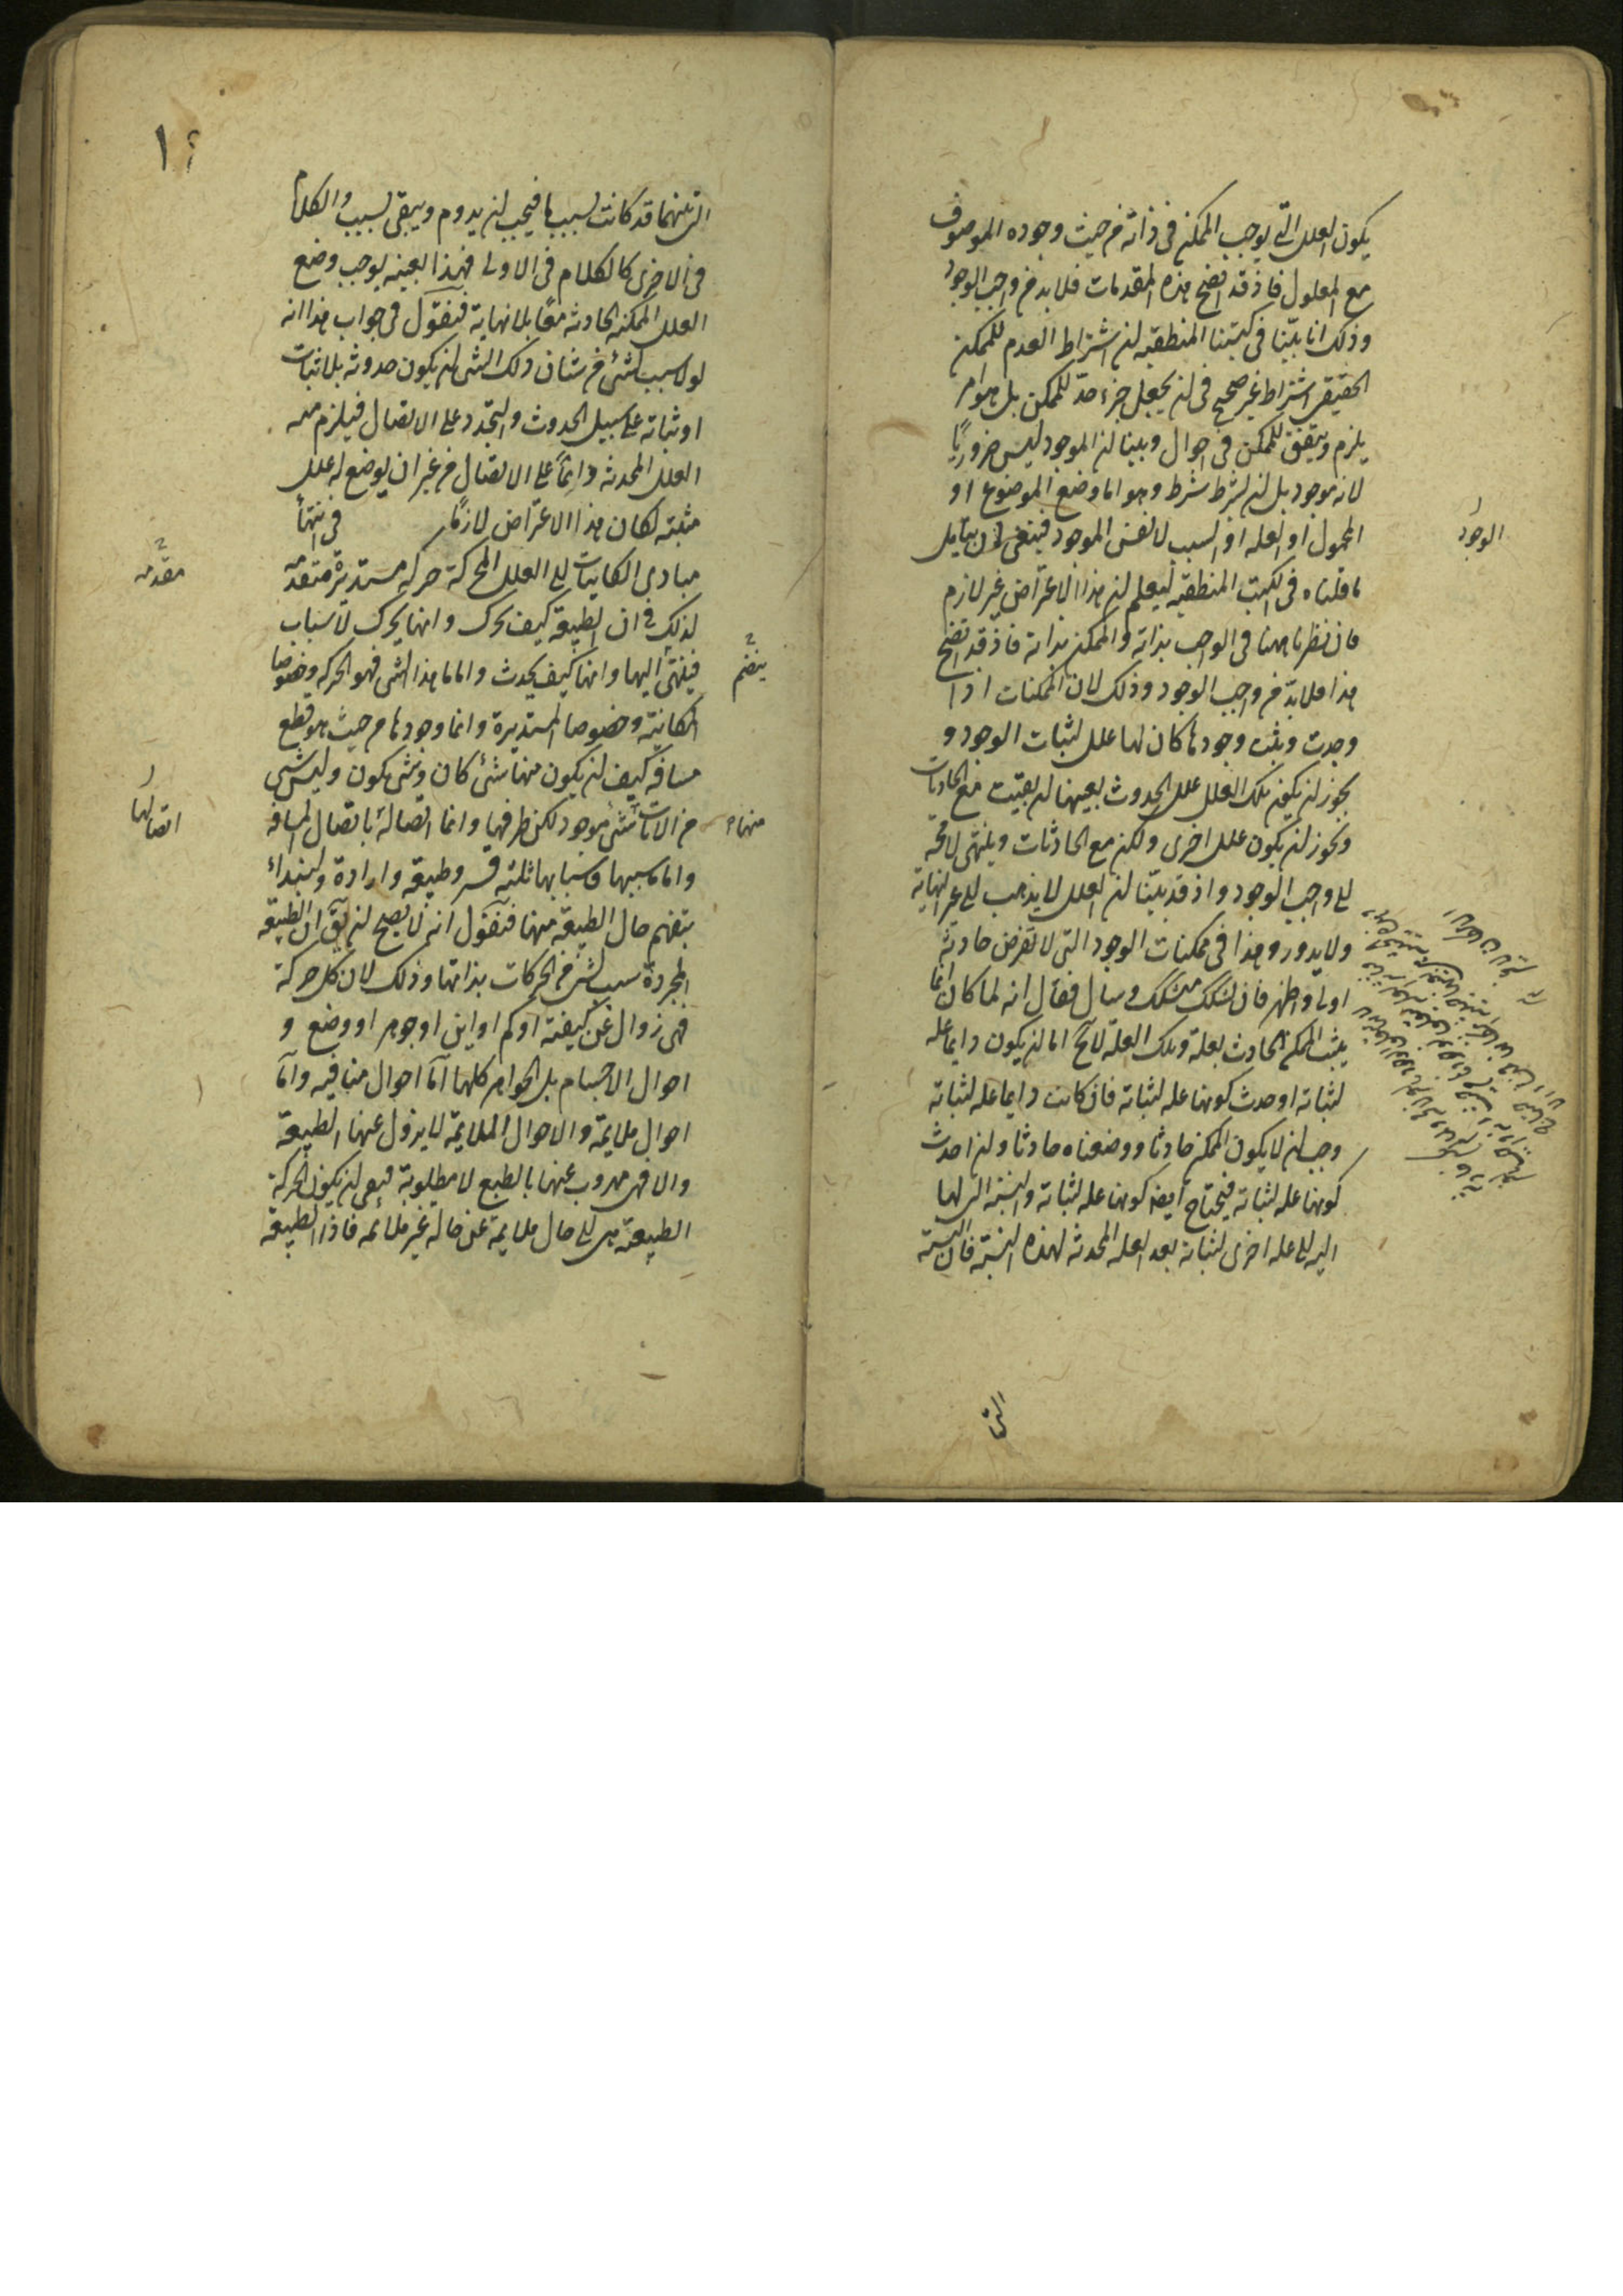 يكون العلل التى يوجب الممكن فى ذاته من حيث وجوده الموصوف
مع المعلول فاذ قد اتضح هذه المقدمات فلابد من واجب الوجود
وذلك انا بيّنا فى كتبنا المنطقيه ان اشتراط العدم للممكن
الحقيقى اشتراط غير صحيح فى ان يجعل جزء حدّ للممكن بل هو امر
يلزم ويتفق للممكن فى احوال وبينا ان الموجود ليس ضروريًا
لانه موجود بل ان يشرط شرط وهو اما وضع الموضوع او
المحمول او العله او السبب لا نفس الموجود فينبغى ان يتامل
ما قلناه فى الكتب المنطقيه ليعلم ان هذا الاعتراض غير لازم
فان نظرنا ههنا فى الواجب بذاته والممكن بذاته فاذ قد اتضح
هذا فلابدّ من واجب الوجود وذلك لان الممكنات اذا
وجدت وثبت وجودها كان لها علل لثبات الوجود و
يجوز ان يكون تلك العلل علل الحدوث بعينها ان بقيت مع الحادثات
ويجوز ان يكون علل اخرى ولكن مع الحادثات وينتهى لامحه
الى واجب الوجود واذ قد بيّنا ان العلل لا يذهب الى غير النهاية
ولا يدور وهذا فى ممكنات الوجود التى لا تفرض حادثة
اولى واظهر فان تشكك متشكك وسال فقال انه لما كان انما
يثبت الممكن الحادث بعلة وتلك العلة لامح اما ان يكون دايما عله
لثباته او حدث كونها عله لثباته فان كانت دايما عله لثباته
وجب ان لا يكون الممكن حادثا ووضعناه حادثا وان احدث
كونها عله لثباته فيحتاج ايضا كونها عله لثباته والنسبة التى لها
اليه الى عله اخرى لثباته بعد العله المحدثه لهذه النسبة فان النسبة
الوجود
التى
١٤
التى بينهما قد كانت بسبب ما فيجب ان يدوم ويبقى بسبب والكلام
فى الاخرى كالكلام فى الاولى فهذا بعينه يوجب وضع
العلل الممكنه الحادثه معًا بلانهاية فنقول فى جواب هذا انه
لولا سبب شئ من شان ذلك الشى ان يكون حدوثه بلا ثبات
او ثباته على سبيل الحدوث والتجدد على الاتصال فيلزم منه
العلل المحدثه دائمًا على الاتصال من غير ان يوضع له علل
مثبته لكان هذا الاعتراض لازمًا فى انتهآء
مبادى الكاينات الى العلل المحركة حركه مستديرة متقدمه
لذلك فى ان الطبيعة كيف تحرك وانها يحرك لاسباب
فينتهى اليها وانها كيف يحدث واما ما هذا الشى فهو الحركه وخصوصا
المكانيّه وخصوصا المستديرة وانما وجودها من حيث هو قطع
مسافه كيف ان يكون منها شئ كان وشى يكون وليس شى
من الانات شئ موجود لكن طرفيها وانما اتصالة باتصال المسافه
واما سببها فاسبابها ثلثه قسر وطبيعه وارادة ولنبداء
بتفهم حال الطبيعة منها فنقول انه لا يصح ان يق ان الطبيعه
المجردة سبب لشئ من الحركات بذاتها وذلك لان كل حركة
فهى زوال عن كيفية او كم او اين او جوهر او وضع و
احوال الاجسام بل الجواهر كلها امّا احوال منافيه وامّا
احوال ملايمة والاحوال الملايمة لا يزول عنها الطبيعة
والا فهى مهروب عنها بالطبع لا مطلوبة فبقى ان يكون الحركة
الطبيعة هى الى حال ملايمة عن حاله غير ملائمه فاذا الطبيعة
مقدمه
ينضم
منهاء
اتصالها